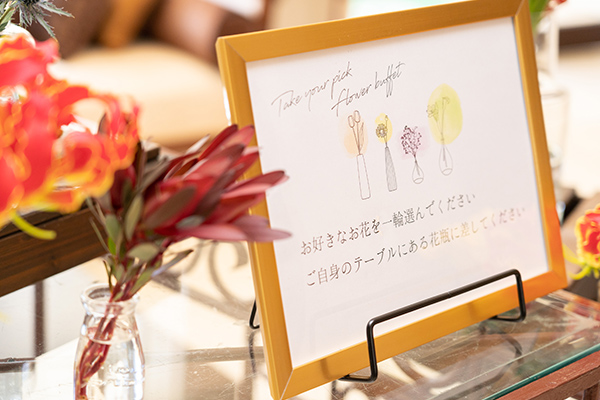 Take your pick
flower buffet
お好きなお花を一輪選んでください
ご自身のテーブルにある花瓶に差してください